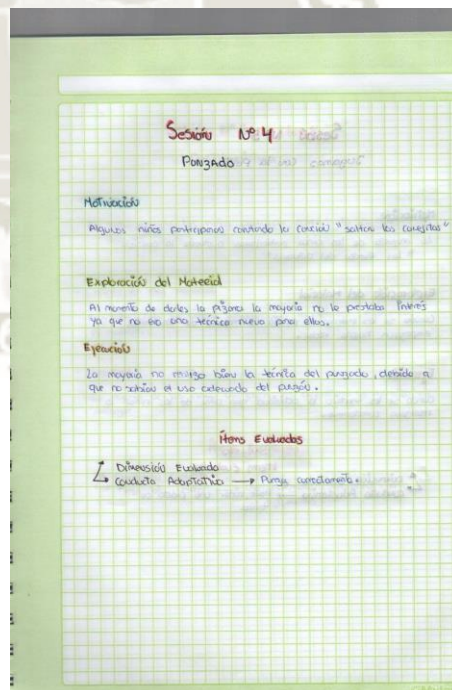 Sesión Nº 4
Punzado
Motivación
Algunos niños participaron cantando la canción "saltan los conejitos"
Exploración del Material
Al momento de darles la la mayoría no le prestaba interés
ya que no era una técnica nueva para ellos.
Ejecución
La mayoría no bien la técnica del punzado, debido a
que no sabían el uso adecuado del punzón.
Ítems Evaluados
Dimensión Evaluada
Conducta Adaptativa → Punza correctamente.